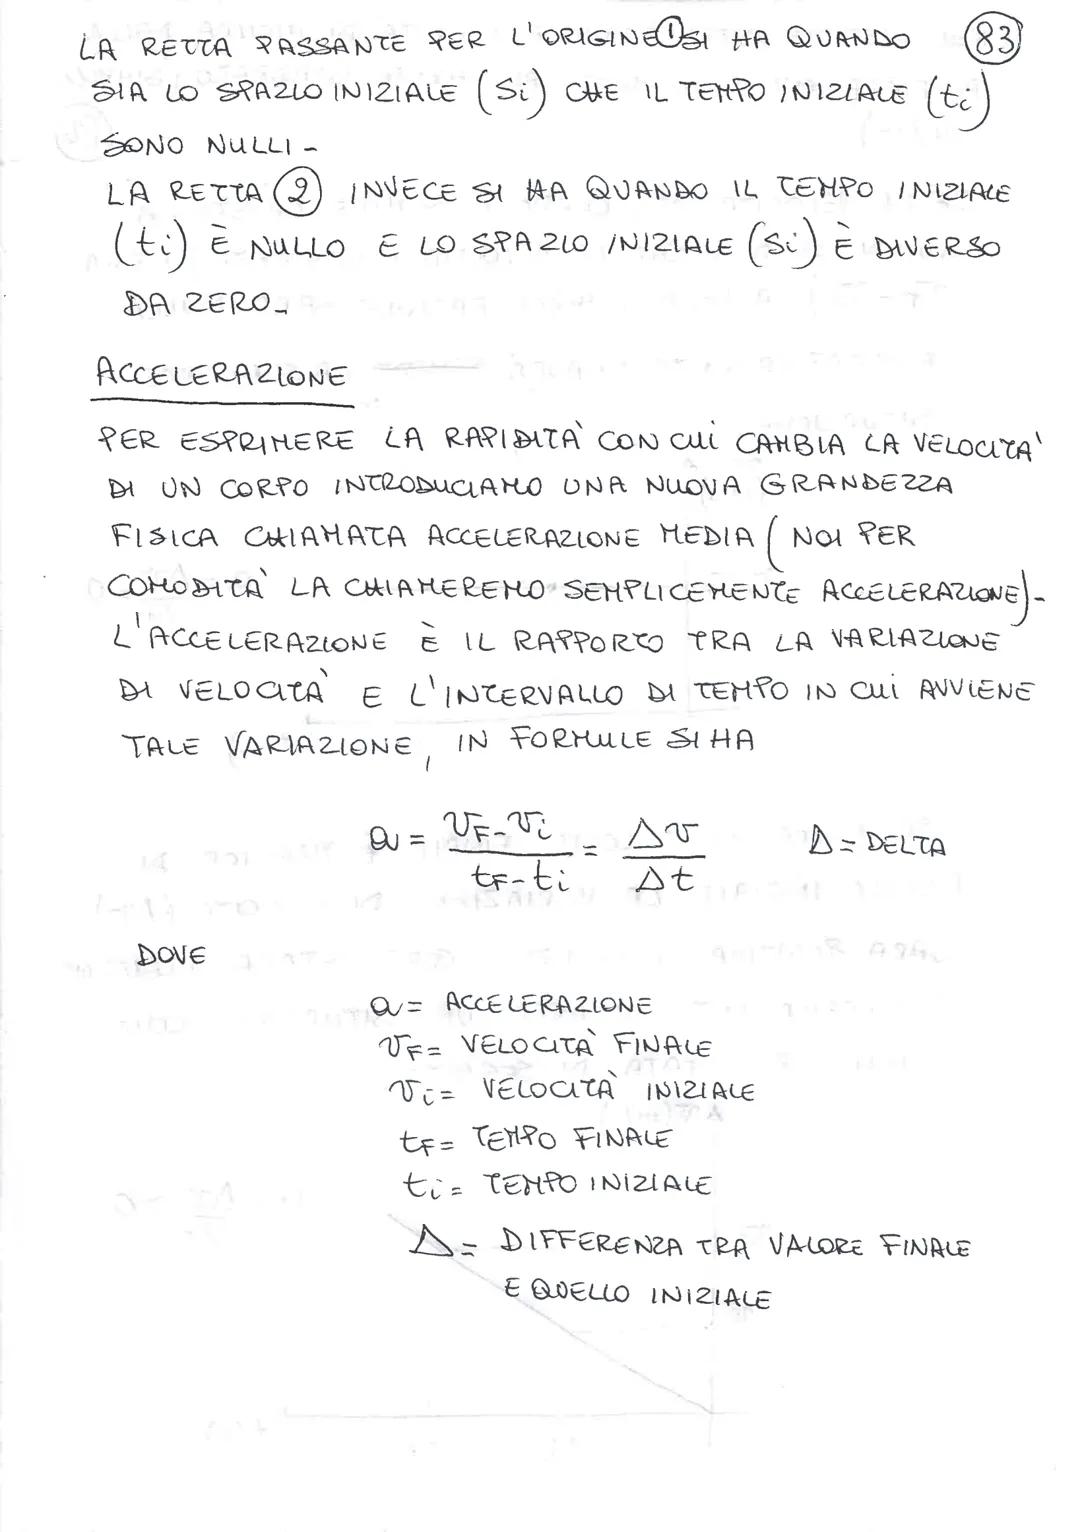 LA RETTA PASSANTE PER L'ORIGINE ① SI HA QUANDO 83
SIA LO SPAZIO INIZIALE (Si) CHE IL TEMPO INIZIALE (ti)
SONO NULLI -
LA RETTA ② INVECE SI HA QUANDO IL TEMPO INIZIALE
(ti) È NULLO E LO SPAZIO INIZIALE (Si) È DIVERSO
DA ZERO -
ACCELERAZIONE
PER ESPRIMERE LA RAPIDITÀ CON CUI CAMBIA LA VELOCITÀ
DI UN CORPO INTRODUCIAMO UNA NUOVA GRANDEZZA
FISICA CHIAMATA ACCELERAZIONE MEDIA (NOI PER
COMODITÀ LA CHIAMEREMO SEMPLICEMENTE ACCELERAZIONE) -
L'ACCELERAZIONE È IL RAPPORTO TRA LA VARIAZIONE
DI VELOCITÀ E L'INTERVALLO DI TEMPO IN CUI AVVIENE
TALE VARIAZIONE, IN FORMULE SI HA
a = (vF - vi)/(tF - ti) = Δv/Δt Δ = DELTA
DOVE
a = ACCELERAZIONE
vF = VELOCITÀ FINALE
vi = VELOCITÀ INIZIALE
tF = TEMPO FINALE
ti = TEMPO INIZIALE
Δ = DIFFERENZA TRA VALORE FINALE
E QUELLO INIZIALE